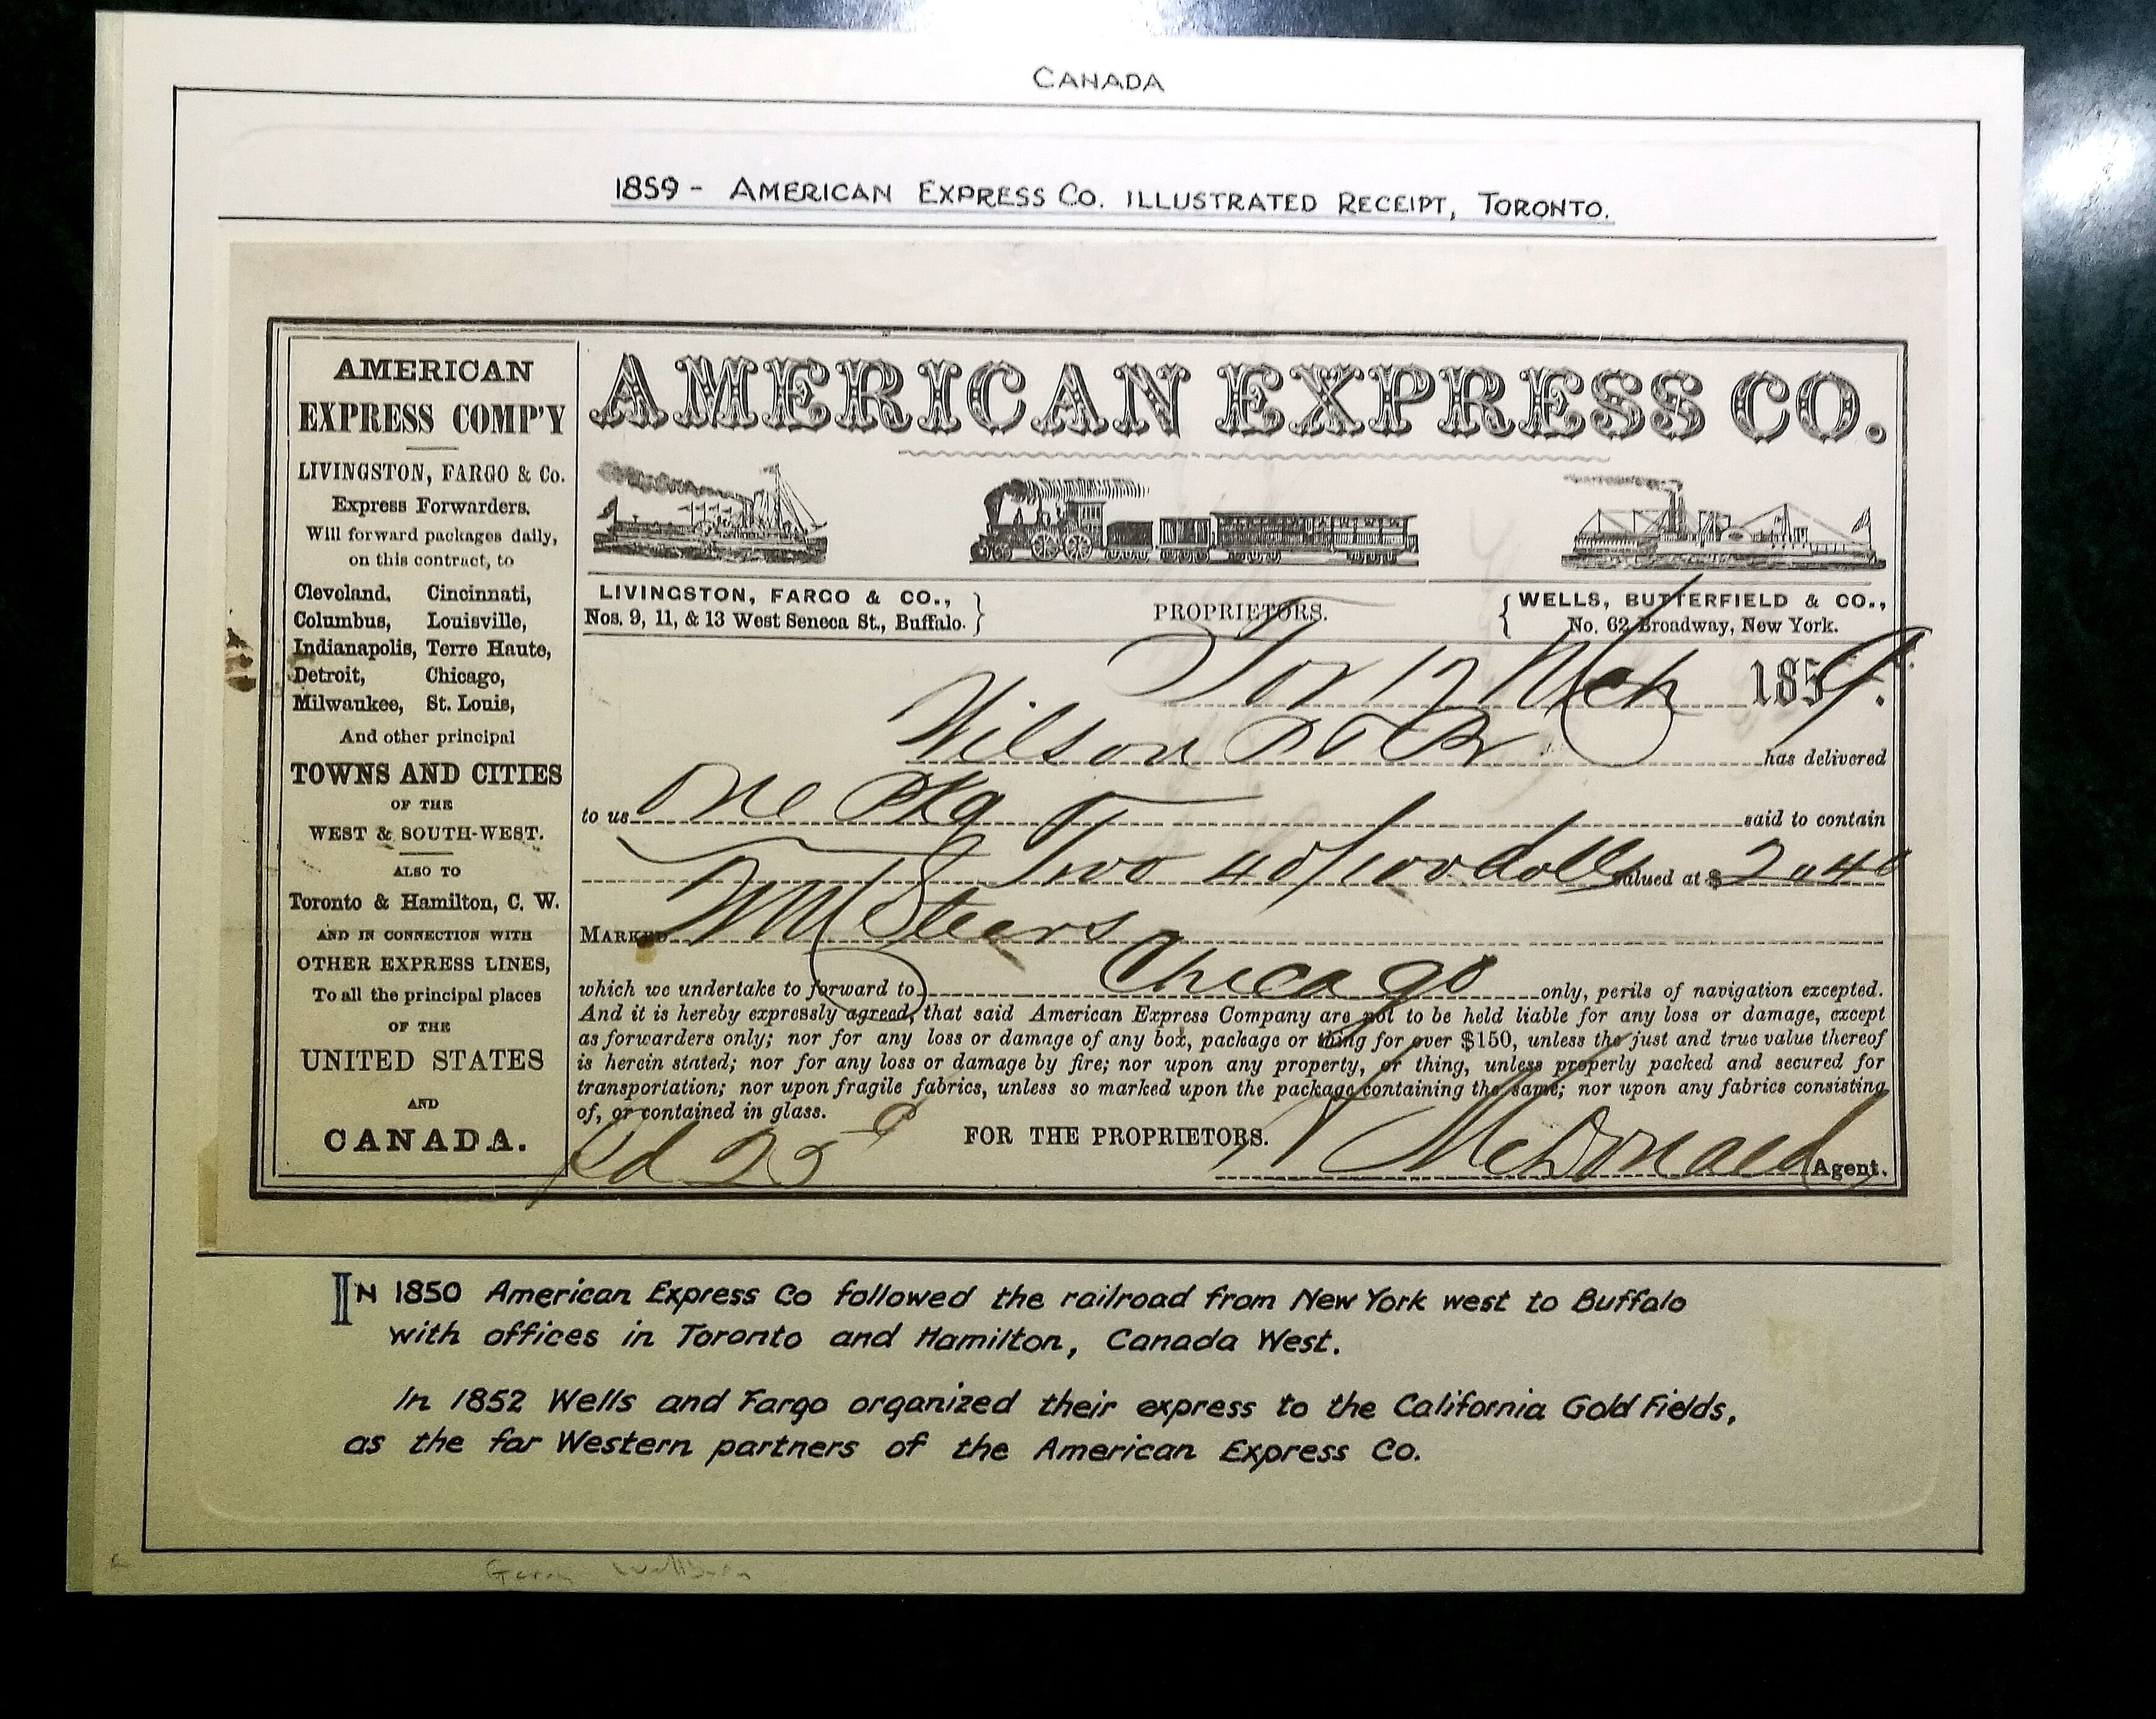 CANADA
1859 - AMERICAN EXPRESS CO. ILLUSTRATED RECEIPT, TORONTO.
AMERICAN
EXPRESS COMP'Y
LIVINGSTON, FARGO & Co.
Express Forwarders.
Will forward packages daily,
on this contract, to
Cleveland, Cincinnati,
Columbus, Louisville,
Indianapolis, Terre Haute,
Detroit, Chicago,
Milwaukee, St. Louis,
And other principal
TOWNS AND CITIES
OF THE
WEST & SOUTH-WEST.
ALSO TO
Toronto & Hamilton, C. W.
AND IN CONNECTION WITH
OTHER EXPRESS LINES,
To all the principal places
OF THE
UNITED STATES
AND
CANADA.
AMERICAN EXPRESS CO.
LIVINGSTON, FARGO & CO.,
Nos. 9, 11, & 13 West Seneca St., Buffalo.
PROPRIETORS.
WELLS, BUTTERFIELD & CO.,
No. 62 Broadway, New York.
Tor 17 Mch 1859.
Wilson has delivered
to us One Pkg said to contain
Two 40/100 dolls valued at $ 2.40
MARKED Wm Steers
which we undertake to forward to Chicago only, perils of navigation excepted.
And it is hereby expressly agreed, that said American Express Company are not to be held liable for any loss or damage, except
as forwarders only; nor for any loss or damage of any box, package or thing for over $150, unless the just and true value thereof
is herein stated; nor for any loss or damage by fire; nor upon any property, or thing, unless properly packed and secured for
transportation; nor upon fragile fabrics, unless so marked upon the package containing the same; nor upon any fabrics consisting
of, or contained in glass.
Pd 25
FOR THE PROPRIETORS.
McDonald Agent.
IN 1850 American Express Co followed the railroad from New York west to Buffalo
with offices in Toronto and Hamilton, Canada West.
In 1852 Wells and Fargo organized their express to the California Gold Fields,
as the far Western partners of the American Express Co.